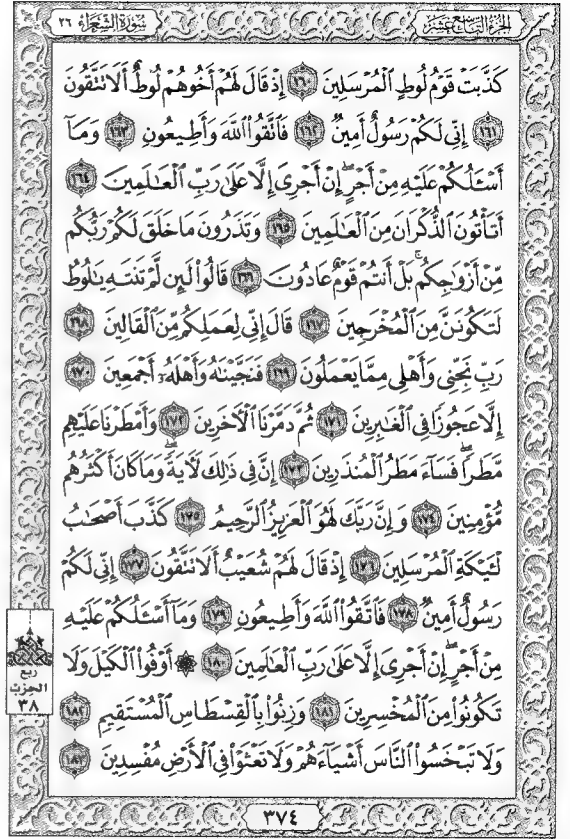 الجزء التاسع عشر سورة الشعراء ٢٦
كَذَّبَتْ قَوْمُ لُوطٍ ٱلْمُرْسَلِينَ ١٦٠ إِذْ قَالَ لَهُمْ أَخُوهُمْ لُوطٌ أَلَا تَتَّقُونَ
١٦١ إِنِّى لَكُمْ رَسُولٌ أَمِينٌ ١٦٢ فَٱتَّقُوا۟ ٱللَّهَ وَأَطِيعُونِ ١٦٣ وَمَآ
أَسْـَٔلُكُمْ عَلَيْهِ مِنْ أَجْرٍ ۖ إِنْ أَجْرِىَ إِلَّا عَلَىٰ رَبِّ ٱلْعَـٰلَمِينَ ١٦٤
أَتَأْتُونَ ٱلذُّكْرَانَ مِنَ ٱلْعَـٰلَمِينَ ١٦٥ وَتَذَرُونَ مَا خَلَقَ لَكُمْ رَبُّكُم
مِّنْ أَزْوَٰجِكُم ۚ بَلْ أَنتُمْ قَوْمٌ عَادُونَ ١٦٦ قَالُوا۟ لَئِن لَّمْ تَنتَهِ يَـٰلُوطُ
لَتَكُونَنَّ مِنَ ٱلْمُخْرَجِينَ ١٦٧ قَالَ إِنِّى لِعَمَلِكُم مِّنَ ٱلْقَالِينَ ١٦٨
رَبِّ نَجِّنِى وَأَهْلِى مِمَّا يَعْمَلُونَ ١٦٩ فَنَجَّيْنَـٰهُ وَأَهْلَهُۥٓ أَجْمَعِينَ ١٧٠
إِلَّا عَجُوزًا فِى ٱلْغَـٰبِرِينَ ١٧١ ثُمَّ دَمَّرْنَا ٱلْـَٔاخَرِينَ ١٧٢ وَأَمْطَرْنَا عَلَيْهِم
مَّطَرًا ۖ فَسَآءَ مَطَرُ ٱلْمُنذَرِينَ ١٧٣ إِنَّ فِى ذَٰلِكَ لَـَٔايَةً ۖ وَمَا كَانَ أَكْثَرُهُم
مُّؤْمِنِينَ ١٧٤ وَإِنَّ رَبَّكَ لَهُوَ ٱلْعَزِيزُ ٱلرَّحِيمُ ١٧٥ كَذَّبَ أَصْحَـٰبُ
لْـَٔيْكَةِ ٱلْمُرْسَلِينَ ١٧٦ إِذْ قَالَ لَهُمْ شُعَيْبٌ أَلَا تَتَّقُونَ ١٧٧ إِنِّى لَكُمْ
رَسُولٌ أَمِينٌ ١٧٨ فَٱتَّقُوا۟ ٱللَّهَ وَأَطِيعُونِ ١٧٩ وَمَآ أَسْـَٔلُكُمْ عَلَيْهِ
مِنْ أَجْرٍ ۖ إِنْ أَجْرِىَ إِلَّا عَلَىٰ رَبِّ ٱلْعَـٰلَمِينَ ١٨٠ ۞ أَوْفُوا۟ ٱلْكَيْلَ وَلَا
تَكُونُوا۟ مِنَ ٱلْمُخْسِرِينَ ١٨١ وَزِنُوا۟ بِٱلْقِسْطَاسِ ٱلْمُسْتَقِيمِ ١٨٢
وَلَا تَبْخَسُوا۟ ٱلنَّاسَ أَشْيَآءَهُمْ وَلَا تَعْثَوْا۟ فِى ٱلْأَرْضِ مُفْسِدِينَ ١٨٣
ربع
الحزب
٣٨
٣٧٤